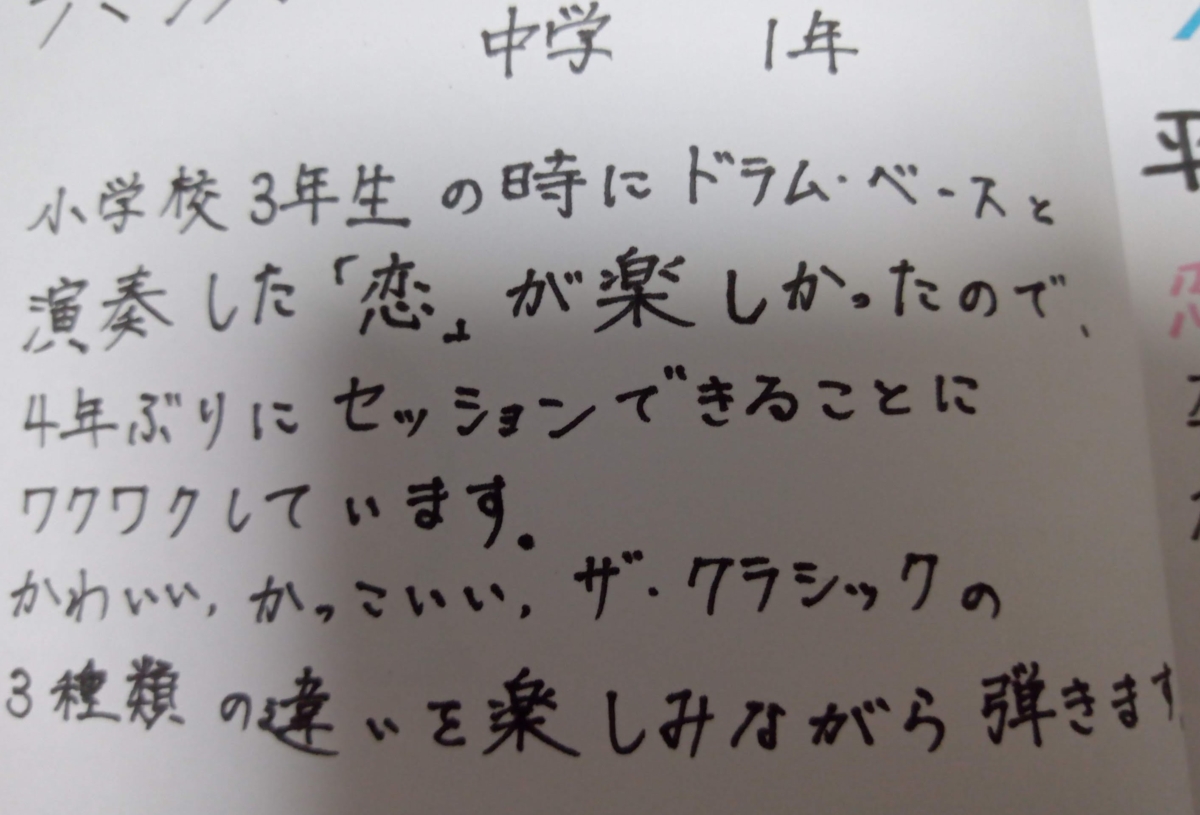 中学 1年
小学校3年生の時にドラム・ベースと
演奏した「恋」が楽しかったので、
4年ぶりにセッションできることに
ワクワクしています。
かわいい、かっこいい、ザ・クラシックの
3種類の違いを楽しみながら弾きます
平